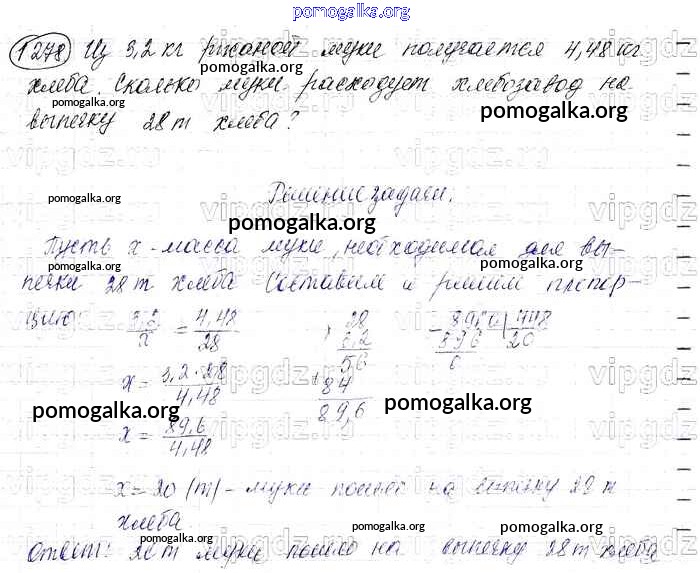 pomogalka.org
1278 Из 3,2 кг ржаной муки получается 4,48 кг
хлеба. Сколько муки расходует хлебозавод на
pomogalka.org
pomogalka.org
выпечку 28 т хлеба?
pomogalka.org
vipgdz.ru
Решение задачи.
pomogalka.org
pomogalka.org
Пусть x - масса муки, необходимая для вы-
печки 28 т хлеба. Составим и решим пропор-
pomogalka.org
цию 3,2/x = 4,48/28
28 3,2 56 + 84 89,6
- 8960 448 896 20 0
x = 3,2·28/4,48
pomogalka.org
pomogalka.org
x = 89,6/4,48
x = 20 (т) - муки пошло на выпечку 28 т
хлеба.
pomogalka.org
pomogalka.org
Ответ: 20 т муки пошло на выпечку 28 т хлеба
pomogalka.org